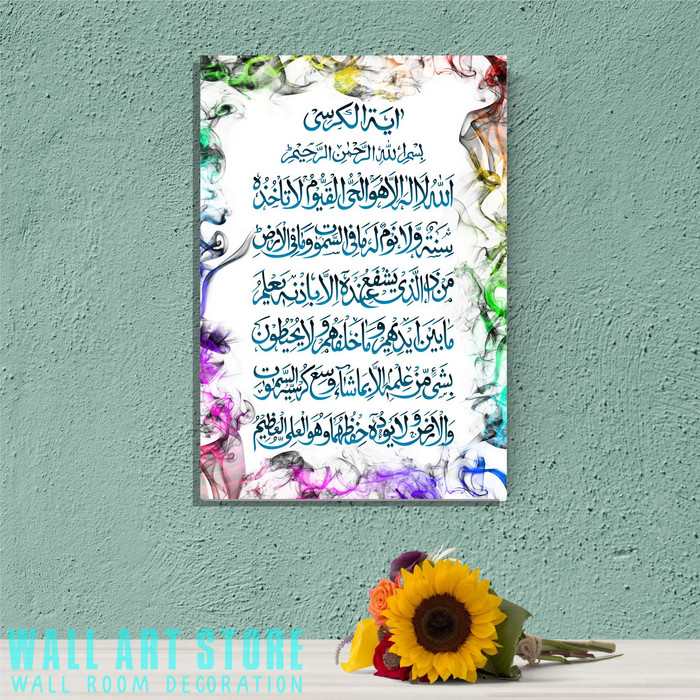 اية الكرسى
بسم الله الرحمن الرحيم
الله لا اله الا هو الحى القيوم لا تاخذه
سنة ولا نوم له ما فى السموت وما فى الارض
من ذا الذى يشفع عنده الا باذنه يعلم
ما بين ايديهم وما خلفهم ولا يحيطون
بشىء من علمه الا بما شاء وسع كرسيه السموت
والارض ولا يوده حفظهما وهو العلى العظيم
WALL ART STORE
WALL ROOM DECORATION